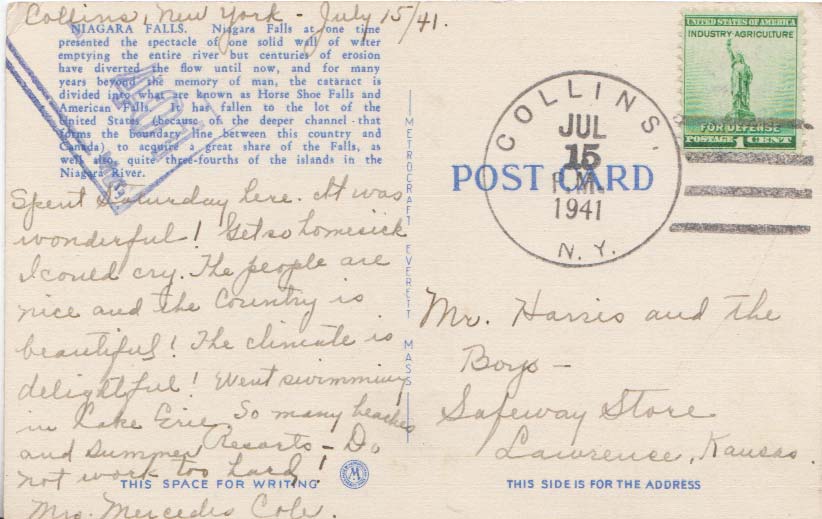 Collins, New York - July 15/41.
NIAGARA FALLS. Niagara Falls at one time
presented the spectacle of one solid wall of water
emptying the entire river but centuries of erosion
have diverted the flow until now, and for many
years beyond the memory of man, the cataract is
divided into what are known as Horse Shoe Falls and
American Falls. It has fallen to the lot of the
United States (because of the deeper channel that
forms the boundary line between this country and
Canada) to acquire a great share of the Falls, as
well also, quite three-fourths of the islands in the
Niagara River.
Spent Saturday here. It was
wonderful! Get so homesick
I could cry. The people are
nice and the Country is
beautiful! The climate is
delightful! Went swimming
in Lake Erie. So many beaches
and summer resorts - Do
not work too hard!
Mrs. Mercedes Cole.
THIS SPACE FOR WRITING
METROCRAFT EVERETT MASS
UNITED STATES OF AMERICA
INDUSTRY·AGRICULTURE
FOR DEFENSE
POSTAGE 1 CENT
COLLINS
JUL
15
P.M.
1941
N. Y.
POST CARD
Mr. Harris and the
Boys -
Safeway Store
Lawrence, Kansas.
THIS SIDE IS FOR THE ADDRESS